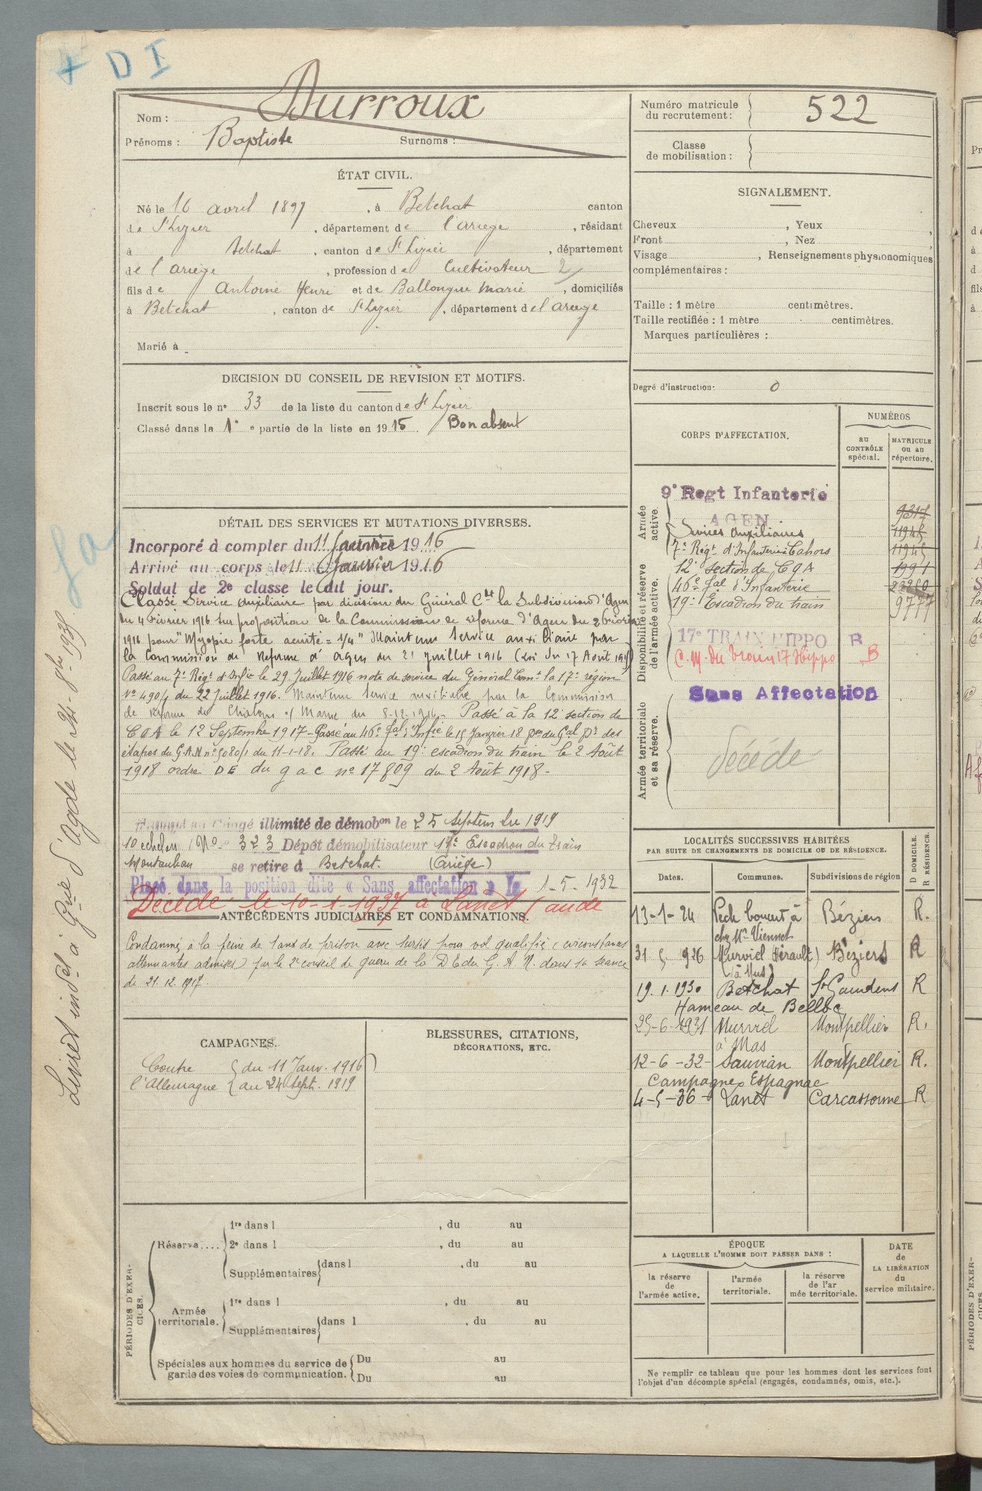 + D I
Nom : Durroux
Prénoms : Baptiste Surnoms :
Numéro matricule du recrutement : 522
Classe de mobilisation :
ÉTAT CIVIL.
Né le 16 avril 1897, à Betchat canton
de St Lizier, département de l'ariège, résidant
à Betchat, canton de St Lizier, département
de l'ariège, profession de Cultivateur 2
fils de Antoine Henri et de Ballongue Marie, domiciliés
à Betchat, canton de St Lizier, département de l'ariège
Marié à
SIGNALEMENT.
Cheveux , Yeux ,
Front , Nez
Visage , Renseignements physionomiques
complémentaires :
Taille : 1 mètre centimètres.
Taille rectifiée : 1 mètre centimètres.
Marques particulières :
Degré d'instruction : 0
DECISION DU CONSEIL DE REVISION ET MOTIFS.
Inscrit sous le no 33 de la liste du canton de St Lizier
Classé dans la 1e partie de la liste en 1915. Bon absent
DÉTAIL DES SERVICES ET MUTATIONS DIVERSES.
Incorporé à compter du 11 Janvier 1916
Arrivé au corps le 11 Janvier 1916
Soldat de 2e classe le dit jour.
Classé Service Auxiliaire par décision du Général Ct la Subdivision d'Agen
du 4 Février 1916 sur proposition de la Commission de réforme d'Agen du 2 Février
1916 pour "Myopie forte acuité = 1/4" Maintenu Service auxiliaire par
la Commission de réforme d'Agen du 21 juillet 1916 (Loi du 17 Août 1915)
Passé au 7e Régt d'Infie le 29 Juillet 1916 note de service du Général Comt la 17e région
No 4980/4 du 22 Juillet 1916. Maintenu service auxiliaire par la Commission
de réforme de Chalons s/ Marne du 8-12-1916. Passé à la 12e section de
C.O.A le 12 Septembre 1917 - Passé au 46e Infie le 15 Janvier 18 des
étapes du G.A.N no 5080/1 du 11-1-18. Passé au 19e escadron du train le 2 Août
1918 ordre DE du g a c no 17809 du 2 Août 1918 -
Congé illimité de démobon le 25 septembre 1919
10e échelon No 323 Dépôt démobilisateur 17e Escadron du Train
Montauban se retire à Betchat. (Ariège)
Placé dans la position dite « Sans affectation » 1-5-1932
Décédé le 10-1-1937 à Lanet (aude
CORPS D'AFFECTATION.
NUMÉROS
AU CONTRÔLE spécial.
MATRICULE OU AU répertoire.
Armée active.
Disponibilité et réserve de l'armée active.
Armée territoriale et sa réserve.
9e Regt Infanterie
AGEN
Services Auxiliaires 11945
7e Régt d'Infanterie Cahors 11945
12e section de COA 1991
46e d'Infanterie
19e Escadron du train 9777
17e TRAIN HIPPO R
C. M. du Train 17 Hippo B
Sans Affectation
décédé
ANTÉCÉDENTS JUDICIAIRES ET CONDAMNATIONS.
Condamné à la peine de 1 ans de prison avec sursis pour vol qualifié (circonstances
atténuantes admises) par le 2e conseil de guerre de la D E du G. A. N. dans sa séance
de 21.12.1917.
LOCALITÉS SUCCESSIVES HABITÉES
PAR SUITE DE CHANGEMENTS DE DOMICILE OU DE RÉSIDENCE.
Dates. Communes. Subdivisions de région D DOMICILE. R RÉSIDENCE.
13-1-24 Béziers R.
chez Mr Viennet
31 5 926 Murviel (Hérault) Béziers R
19.1.1930 Betchat St Gaudens R
Hameau de
25-6-1931 Murviel Montpellier R.
à Mas
12-6-32- Sauvian Montpellier R.
Campagne Espagnac
4-5-36- Lanet Carcassonne R
CAMPAGNES.
Contre l'Allemagne { du 11 Janv. 1916 au 24 Sept. 1919 )
BLESSURES, CITATIONS,
DÉCORATIONS, ETC.
PÉRIODES D'EXERCICES.
Réserve.... 1re dans l , du au
2e dans l , du au
Supplémentaires dans l , du au
Armée territoriale. 1re dans l , du au
Supplémentaires dans l , du au
Spéciales aux hommes du service de garde des voies de communication. Du au
Du au
ÉPOQUE
A LAQUELLE L'HOMME DOIT PASSER DANS :
la réserve de l'armée active.
l'armée territoriale.
la réserve de l'armée territoriale.
DATE de LA LIBÉRATION du service militaire.
Ne remplir ce tableau que pour les hommes dont les services font
l'objet d'un décompte spécial (engagés, condamnés, omis, etc.).
Livret d'Agde le